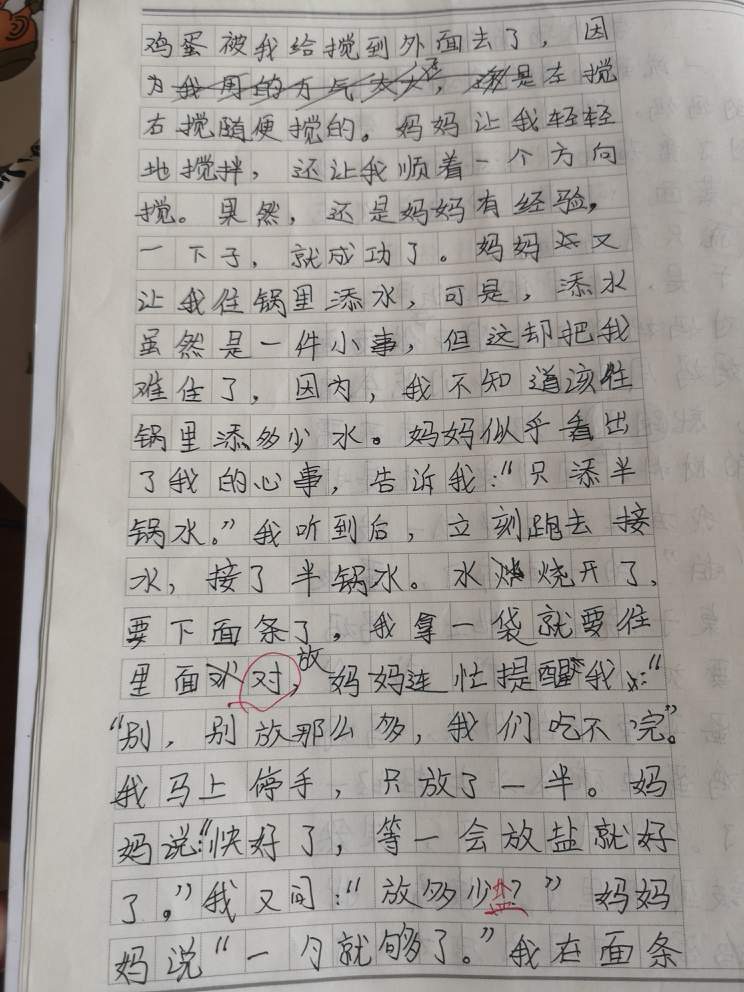 鸡蛋被我给搅到外面去了，因
为我用的力气太大，还是左搅
右搅随便搅的。妈妈让我轻轻
地搅拌，还让我顺着一个方向
搅。果然，还是妈妈有经验，
一下子，就成功了。妈妈又
让我住锅里添水，可是，添水
虽然是一件小事，但这却把我
难住了，因为，我不知道该住
锅里添多少水。妈妈似乎看出
了我的心事，告诉我：“只添半
锅水。”我听到后，立刻跑去接
水，接了半锅水。水烧开了，
要下面条了，我拿一袋就要住
里面对，放妈妈连忙提醒我：“
“别，别放那么多，我们吃不完”。
我马上停手，只放了一半。妈
妈说：“快好了，等一会放盐就好
了。”我又问：“放多少盐？”妈妈
妈说“一勺就够了。”我在面条